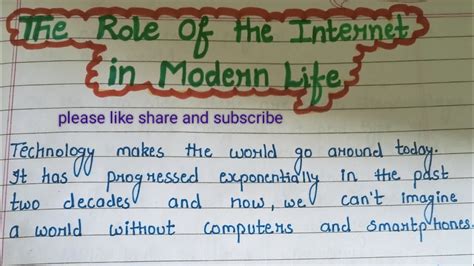 The Role Of the Internet
in Modern Life
please like share and subscribe
Technology makes the world go around today.
It has progressed exponentially in the past
two decades and now, we can't imagine
a world without computers and smartphones.